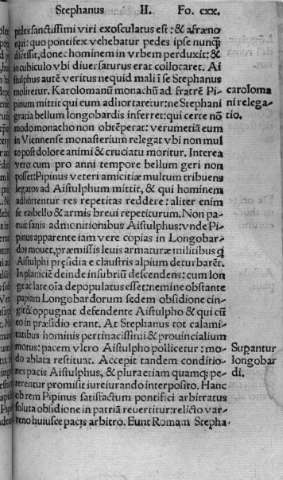 Stephanus II. Fo. cxx.
pedes sanctissimi viri exosculatus est: & afræno
equi: quo pontifex vehebatur pedes ipse nunq̃
discessit, donec hominem in vrbem perduxit: &
in cubiculo vbi diuersaturus erat collocaret. Ai
stulphus autē veritus nequid mali i se Stephanus
moliretur. Karolomanū monachū ad fratrē Pi-
pinum mittit qui eum adhortaretur: ne Stephani
gratia bellum longobardis inferret: qui certe nō
modo monacho non obtēperat: verumetiā eum
in Viennense monasterium relegat vbi non mul
to post dolore animi & cruciatu moritur. Interea
vero cum pro anni tempore bellum geri non
posset: Pipinus veteri amicitiæ multum tribuens
legatos ad Aistulphum mittit, & qui hominem
admonerent res repetitas reddere: aliter enim
se rabello & armis breui repetiturum. Non pa-
ruit sanis admonitionibus Aistulphus: vnde Pi-
pinus apparente iam vere copias in Longobar-
dos mouet, præmissis leuis armaturæ militibus q̃
Aistulphi præsidia e claustris alpium deturbarēt.
In planiciē deinde insubriū descendens: cum lon
ge ac late oīa depopulatus esset: nemine obstante
papiam Longobardorum sedem obsidione cin-
git & oppugnat defendente Aistulpho & qui cū
eo in præsidio erant. At Stephanus tot calami-
tatibus hominis pertinacissimi & prouincialium
motus: pacem vltro Aistulpho pollicetur: mo-
do ablata restituat. Accepit tandem conditio-
nes pacis Aistulphus, & pluraetiam quamq; pe-
terentur promisit iureiurando interposito. Hanc
ob rem Pipinus satisfactum pontifici arbitratus
soluta obsidione in patriā reuertitur: relicto var-
reno huiusce pacis arbitro. Eunt Romam Stepha-
caroloma
ni relega-
tio.
Supantur
longobar
di.